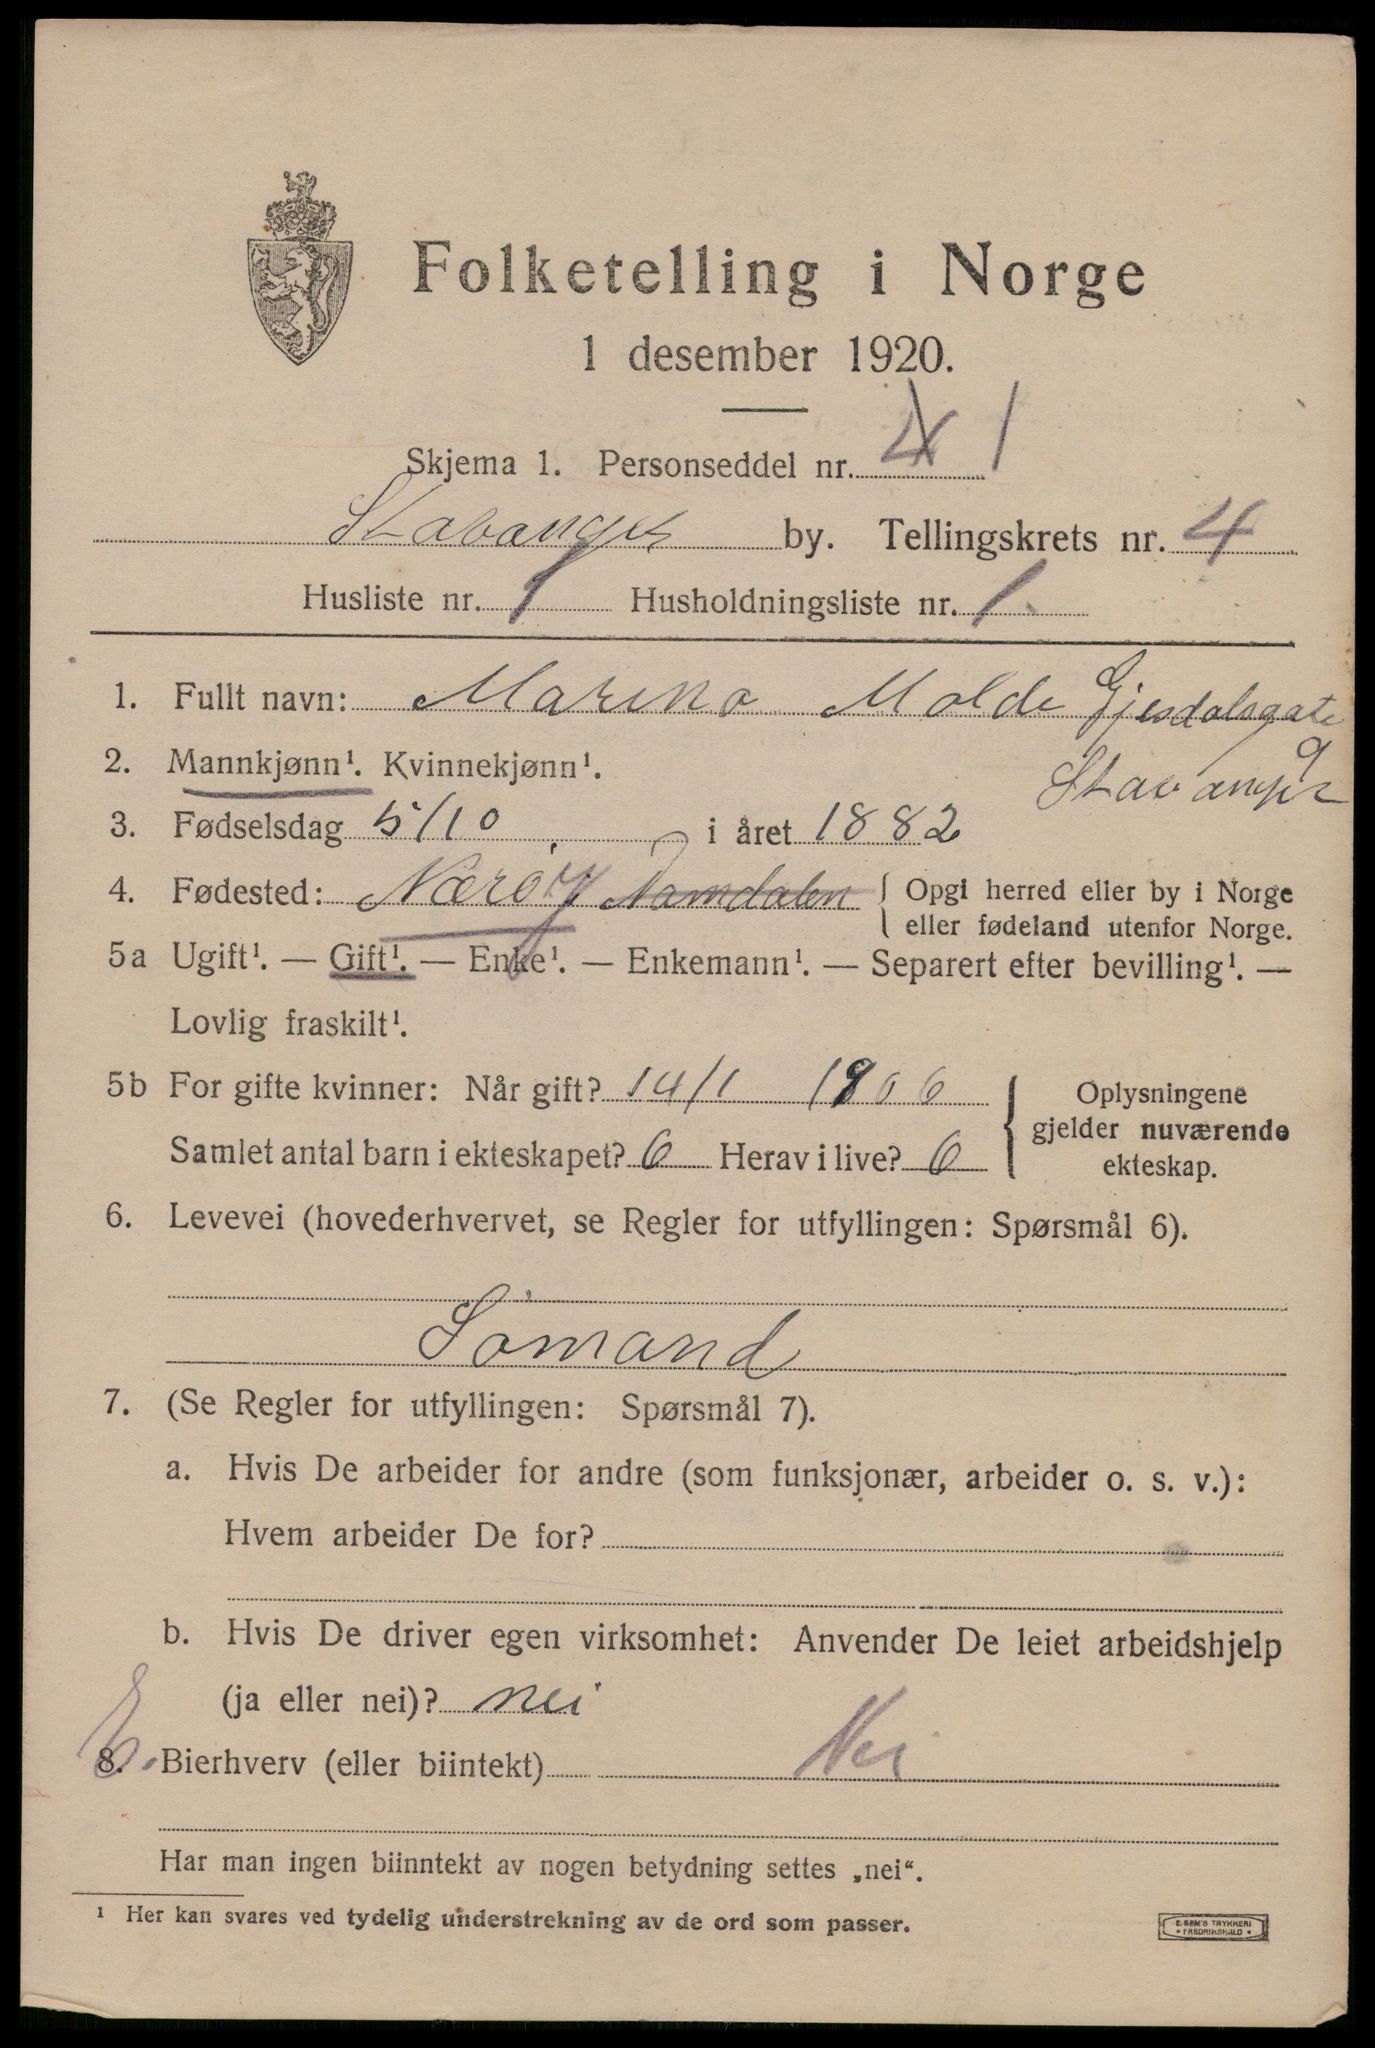 Folketelling i Norge
1 desember 1920.
Skjema 1. Personseddel nr. 4 1
Stavanger by. Tellingskrets nr. 4
Husliste nr. 1 Husholdningsliste nr. 1.
1. Fullt navn: Marino Molde Gjesdalsgate 9
Stavanger
2. Mannkjønn¹. Kvinnekjønn¹.
3. Fødselsdag 5/10 i året 1882
4. Fødested: Nærøy Namdalen { Opgi herred eller by i Norge
eller fødeland utenfor Norge.
5a Ugift¹. — Gift¹. — Enke¹. — Enkemann¹. — Separert efter bevilling¹. —
Lovlig fraskilt¹.
5b For gifte kvinner: Når gift? 14/1 1906
Samlet antal barn i ekteskapet? 6 Herav i live? 6
{ Oplysningene
gjelder nuværende
ekteskap.
6. Levevei (hovederhvervet, se Regler for utfyllingen: Spørsmål 6).
Sømand
7. (Se Regler for utfyllingen: Spørsmål 7).
a. Hvis De arbeider for andre (som funksjonær, arbeider o. s. v.):
Hvem arbeider De for?
b. Hvis De driver egen virksomhet: Anvender De leiet arbeidshjelp
(ja eller nei)? nei
8. Bierhverv (eller biintekt) Nei
Har man ingen biinntekt av nogen betydning settes „nei“.
¹ Her kan svares ved tydelig understrekning av de ord som passer.
E. SEM'S TRYKKERI
• FREDRIKSHALD •